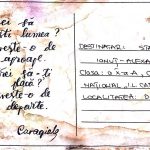 rei să
ești lumea?
vește-o de
aproape.
rei să-ți
placă?
vește-o de
departe.
Caragiale
DESTINATAR: STA
IONUȚ-ALEXA
CLASA: a X-a A, C
NAȚIONAL „I.L. CA
LOCALITATEA: